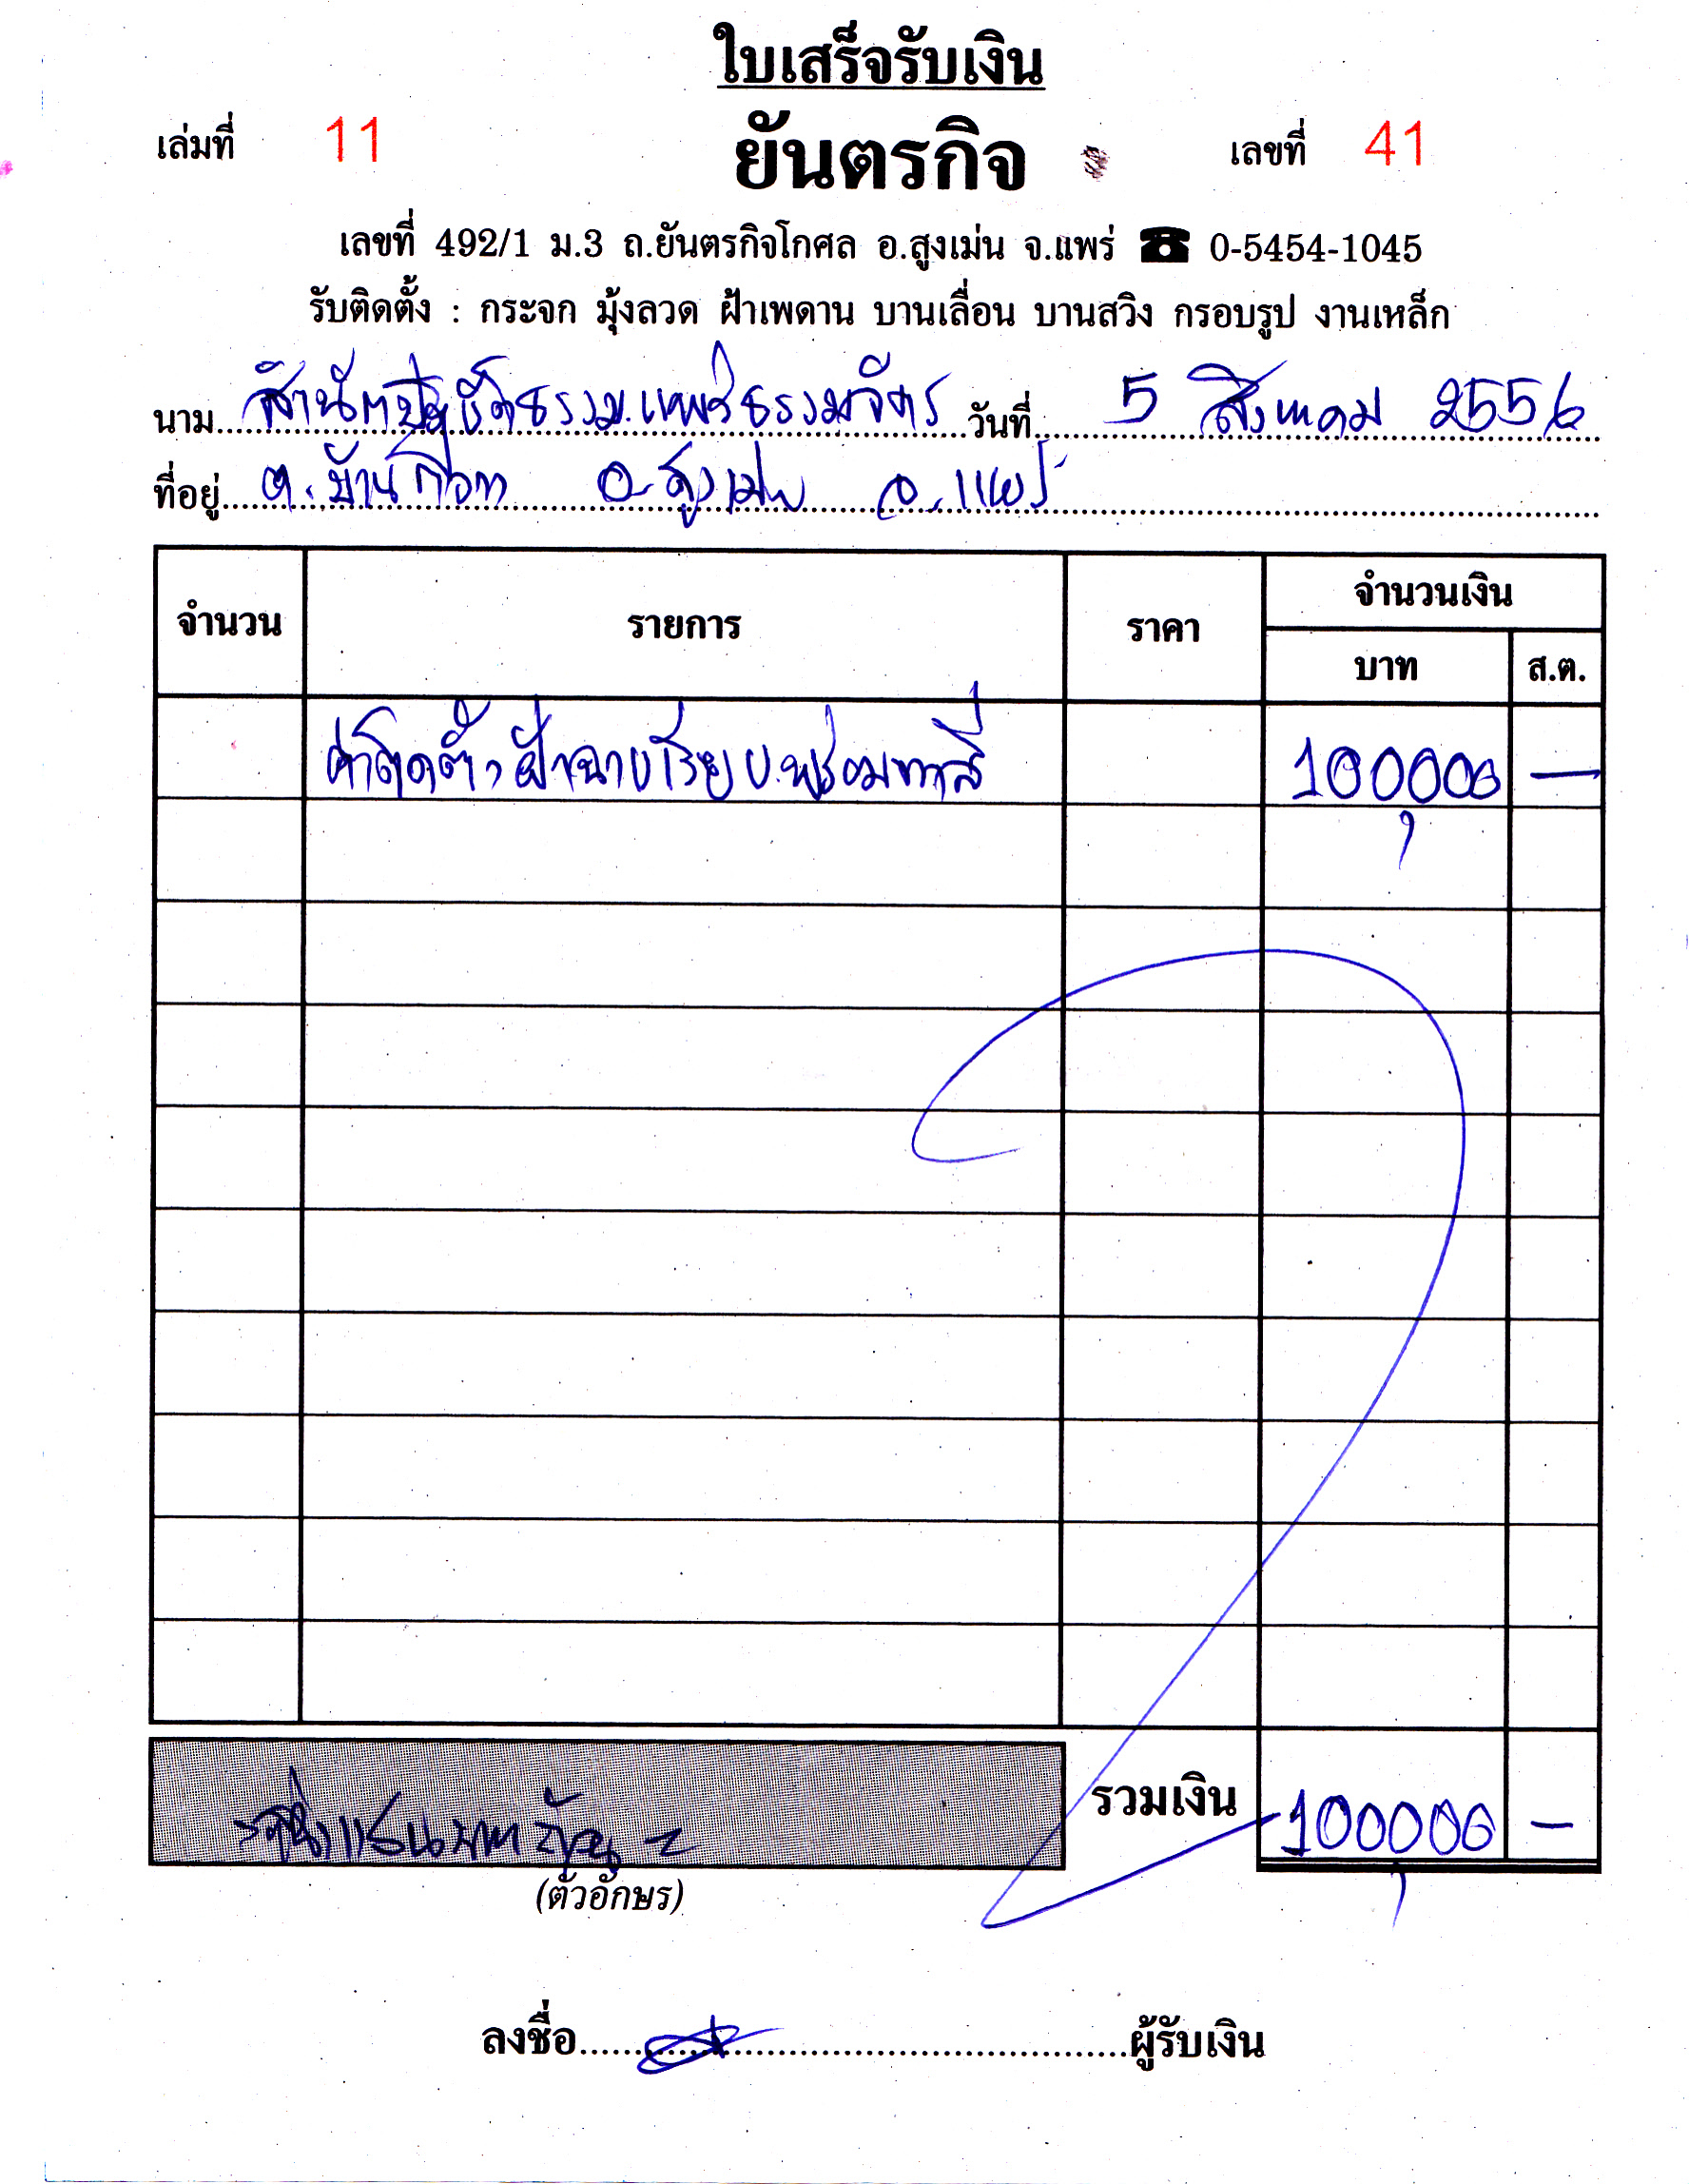 ใบเสร็จรับเงิน
เล่มที่ 11 ยันตรกิจ เลขที่ 41
เลขที่ 492/1 ม.3 ถ.ยันตรกิจโกศล อ.สูงเม่น จ.แพร่ ☎ 0-5454-1045
รับติดตั้ง : กระจก มุ้งลวด ฝ้าเพดาน บานเลื่อน บานสวิง กรอบรูป งานเหล็ก
นาม สำนักปฏิบัติธรรมแพร่ธรรมจักร วันที่ 5 สิงหาคม 2556
ที่อยู่ ต.บ้านกวาง อ.สูงเม่น จ.แพร่
จำนวน รายการ ราคา จำนวนเงิน
บาท ส.ต.
ค่าติดตั้งฝ้าฉาบเรียบพร้อมทาสี 100,000 —
หนึ่งแสนบาทถ้วน - รวมเงิน 100,000 —
(ตัวอักษร)
ลงชื่อ ผู้รับเงิน